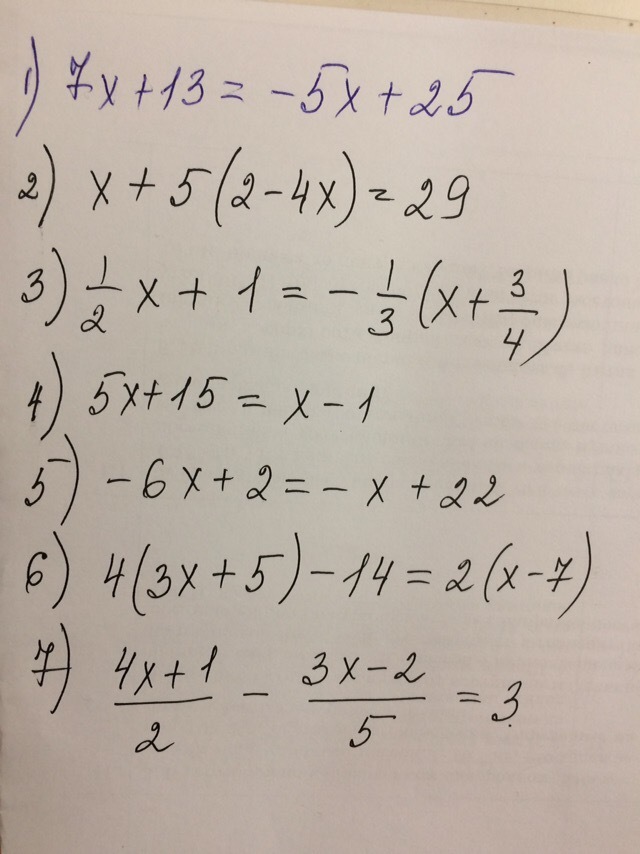 1) 7x + 13 = -5x + 25
2) x + 5(2 - 4x) = 29
3) 1/2 x + 1 = - 1/3 (x + 3/4)
4) 5x + 15 = x - 1
5) -6x + 2 = -x + 22
6) 4(3x + 5) - 14 = 2(x - 7)
7) (4x + 1)/2 - (3x - 2)/5 = 3